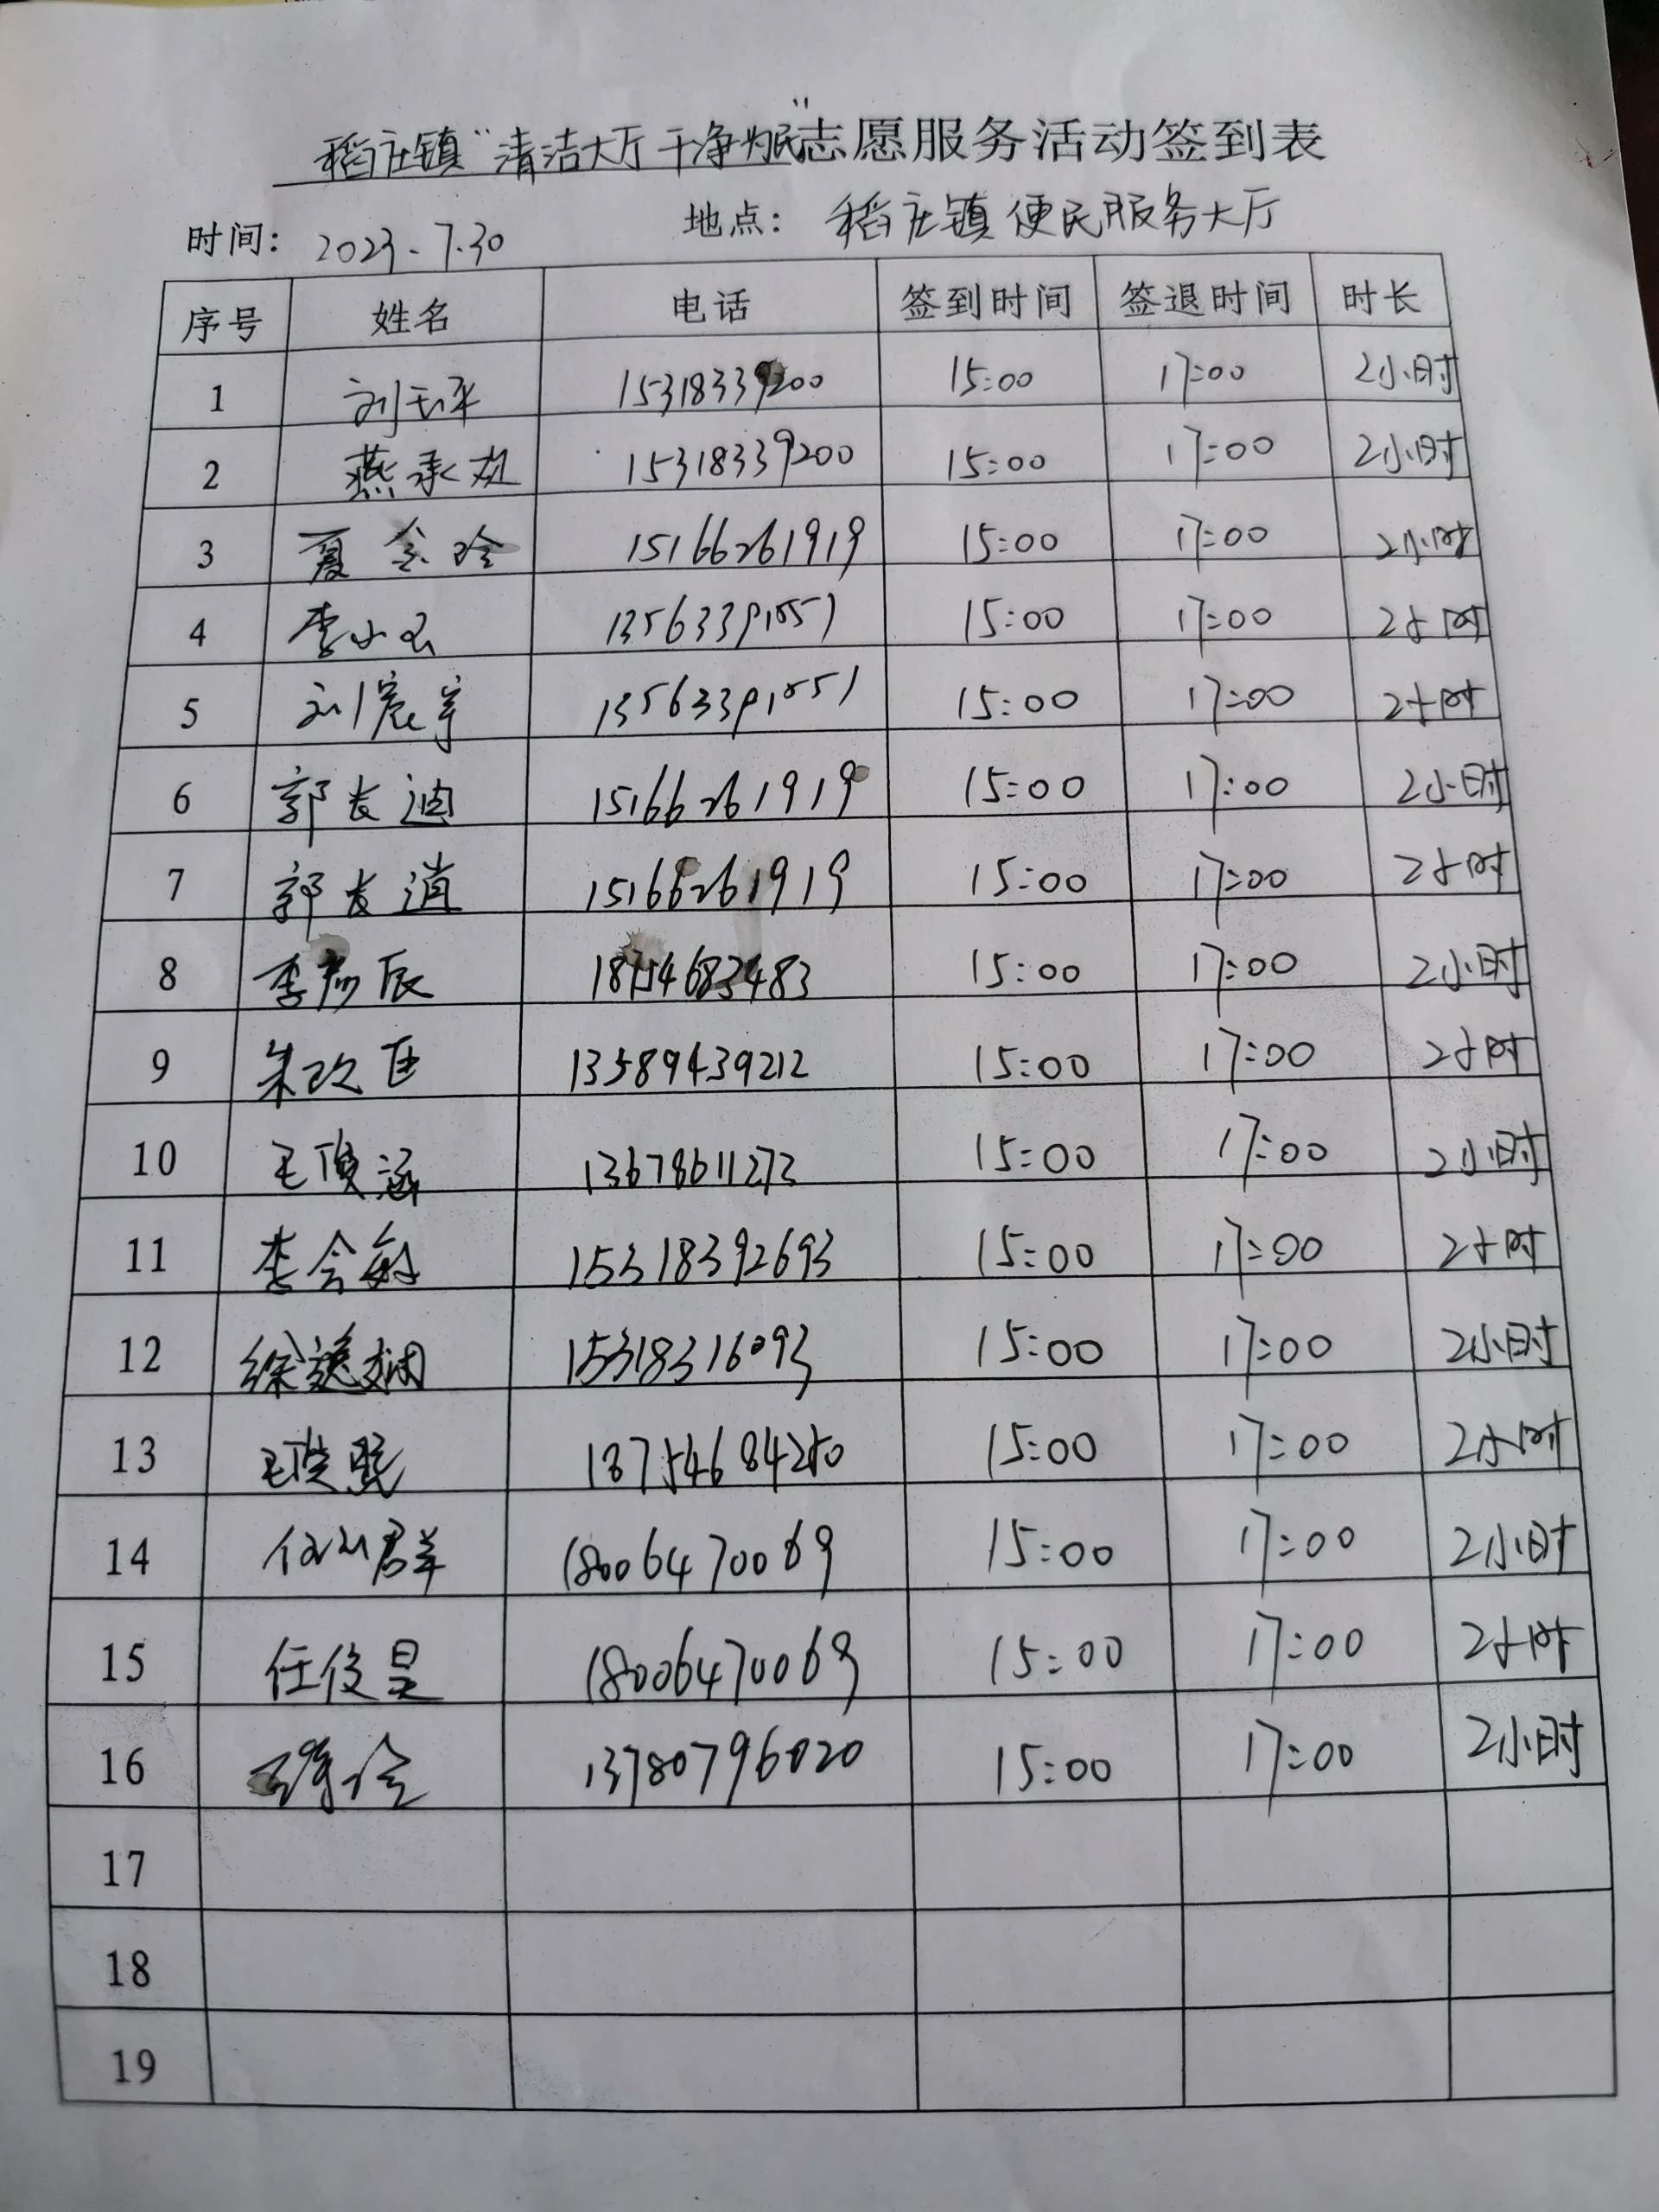 稻庄镇“清洁大厅 干净为民”志愿服务活动签到表
时间: 2023.7.30 地点: 稻庄镇便民服务大厅
序号 姓名 电话 签到时间 签退时间 时长
1 15318339200 15:00 17:00 2小时
2 燕承欢 15318339200 15:00 17:00 2小时
3 夏金玲 15166261919 15:00 17:00 2小时
4 李小玉 15:00 17:00 2小时
5 刘宸宇 15:00 17:00 2小时
6 郭友迪 15166261919 15:00 17:00 2小时
7 郭友逍 15166261919 15:00 17:00 2小时
8 李彦辰 15:00 17:00 2小时
9 13589439212 15:00 17:00 2小时
10 王俊涵 13678611273 15:00 17:00 2小时
11 李会敏 15318392693 15:00 17:00 2小时
12 15318316093 15:00 17:00 2小时
13 15:00 17:00 2小时
14 18006470069 15:00 17:00 2小时
15 任俊昊 18006470069 15:00 17:00 2小时
16 13780796020 15:00 17:00 2小时
17
18
19